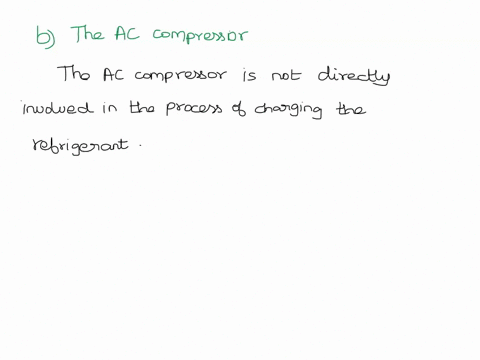 b) The AC compressor
The AC compressor is not directly
involved in the process of charging the
refrigerant.